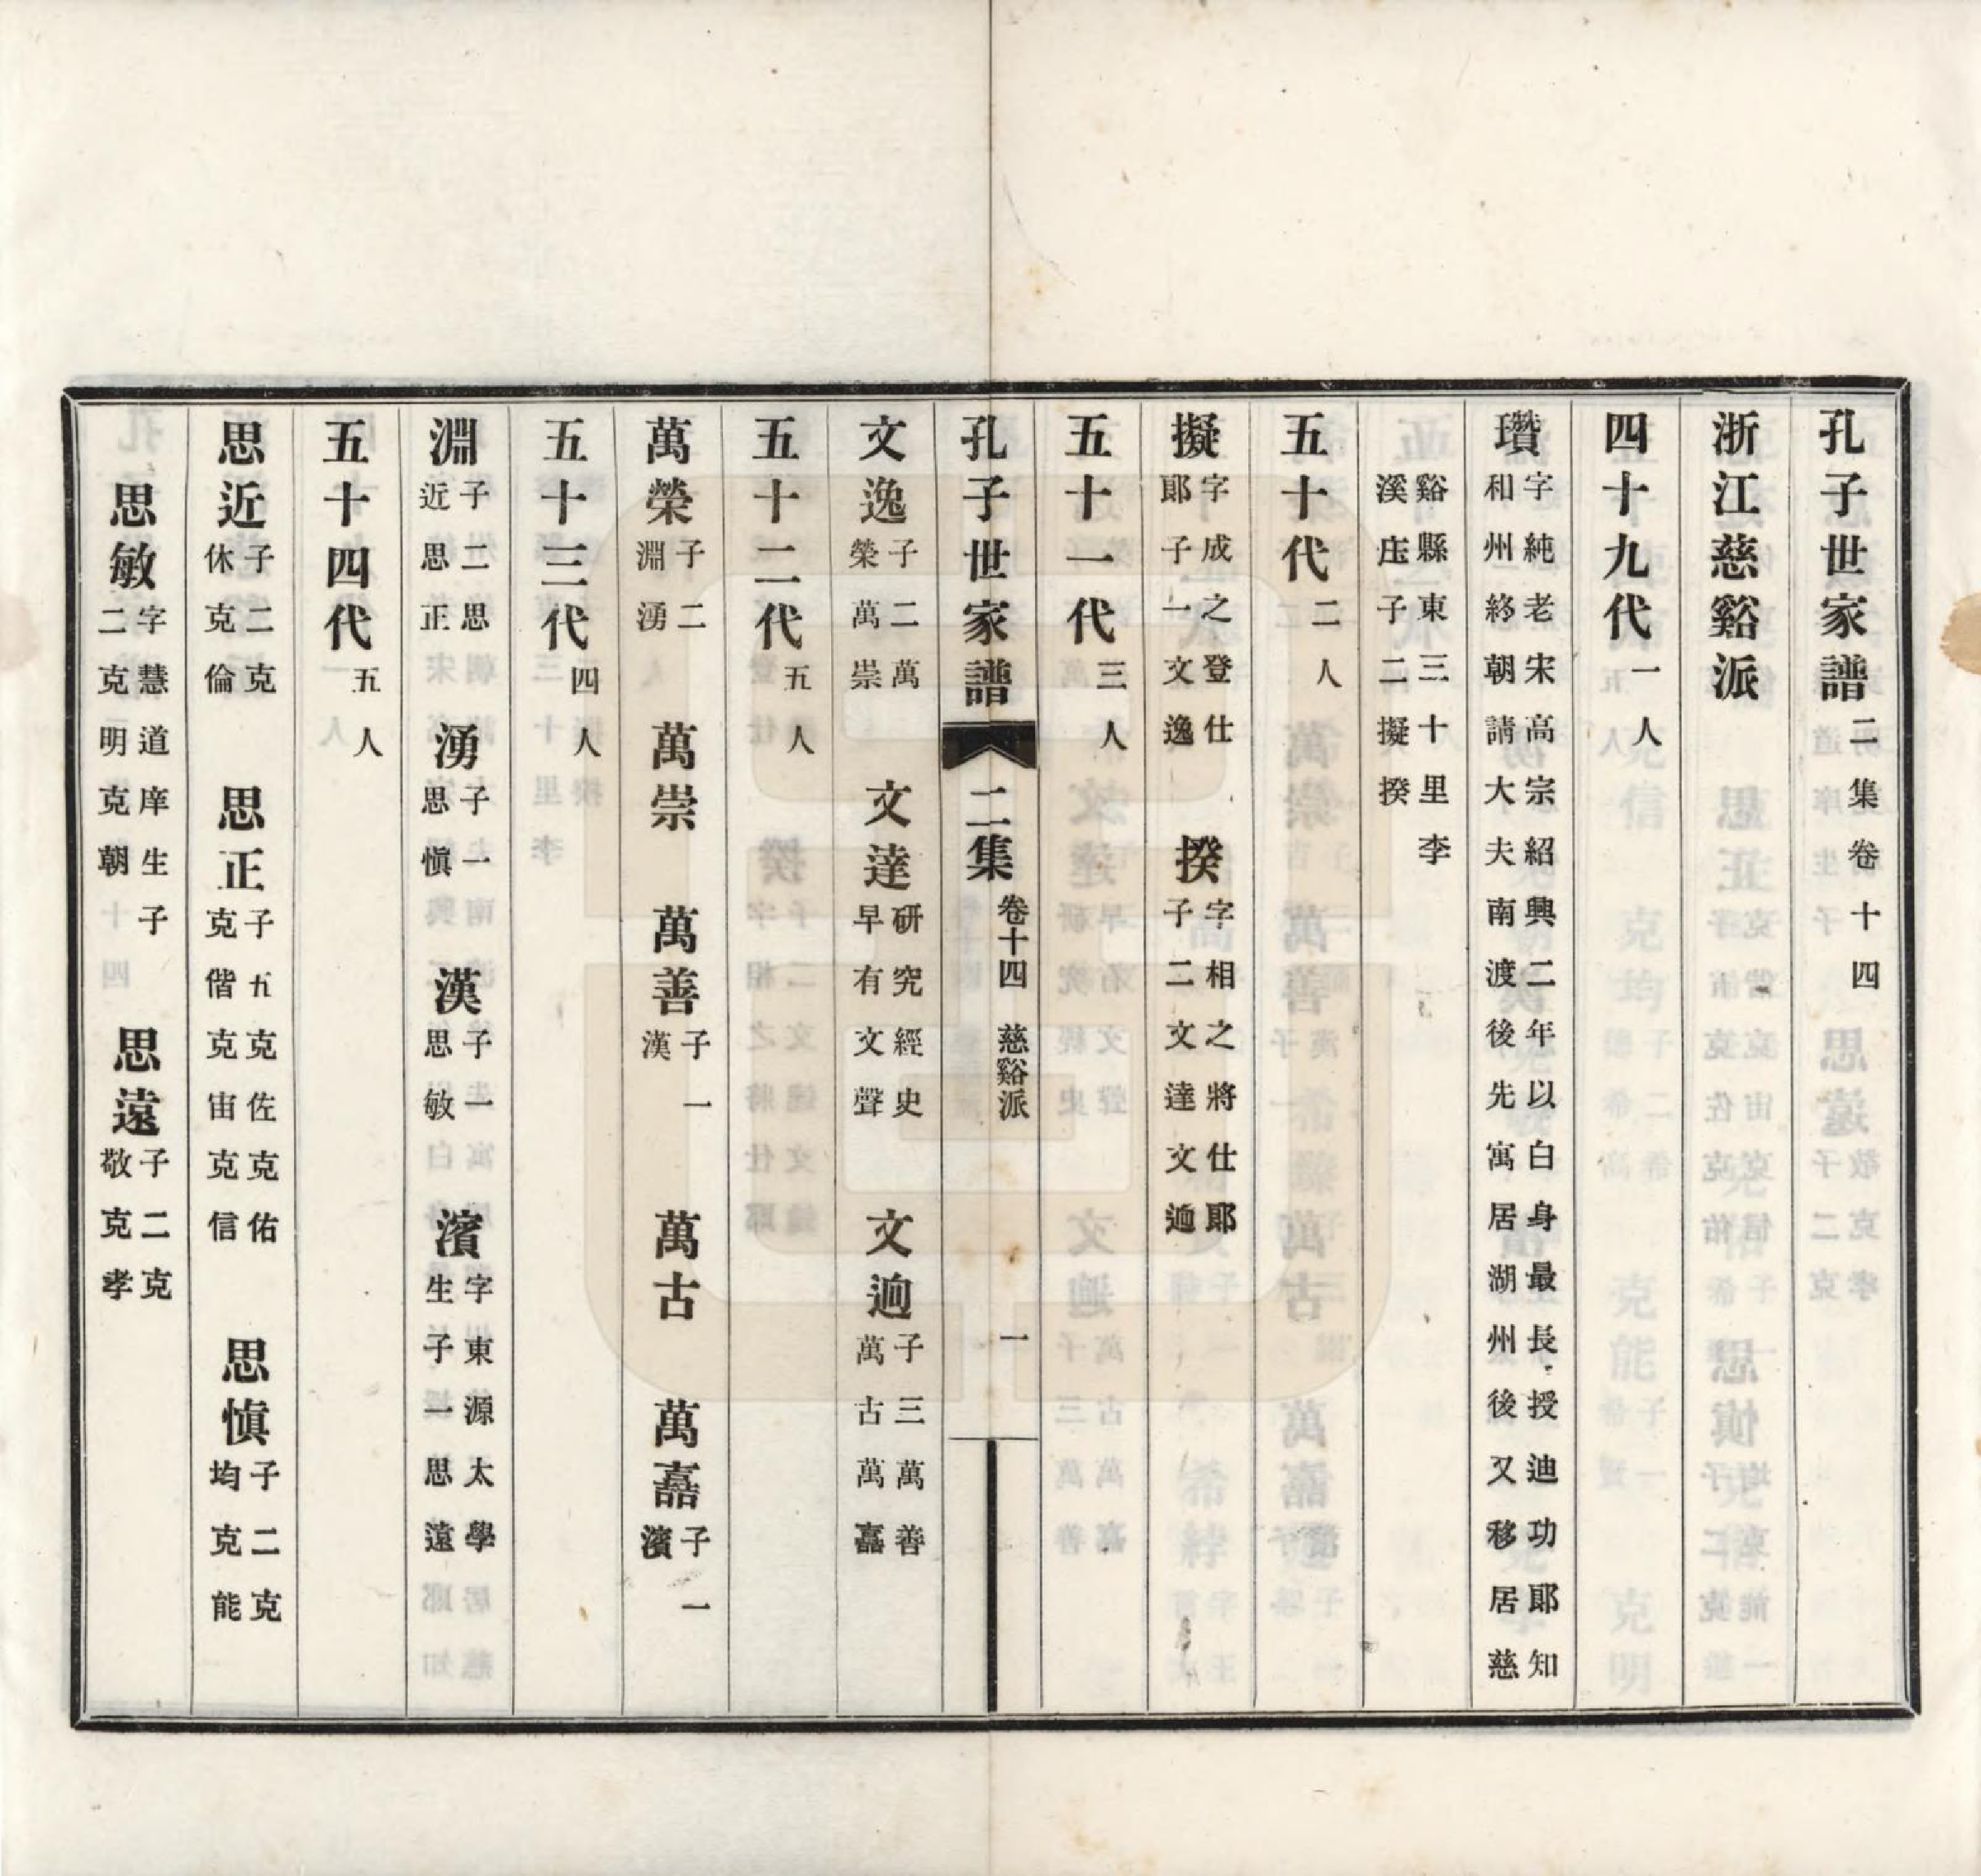 孔子世家譜二集卷十四
浙江慈谿派
四十九代一人
瓚字純老宋高宗紹興二年以白身最長授迪功郞知
和州終朝請大夫南渡後先寓居湖州後又移居慈
谿縣東三十里李
溪庄子二擬揆
五十代二人
擬字成之登仕
郞子一文逸
揆字相之將仕郞
子二文達文逈
五十一代三人
孔子世家譜
二集
卷十四 慈谿派
一
文逸子二萬
榮萬崇
文達研究經史
早有文聲
文逈子三萬善
萬古萬嚞
五十二代五人
萬榮子二
淵湧
萬崇
萬善子一
漢
萬古
萬嚞子一
濱
五十三代四人
淵子二思
近思正
湧子一
思愼
漢子一
思敏
濱字東源太學
生子一思遠
五十四代五人
思近子二克
休克倫
思正子五克佐克佑
克偕克宙克信
思愼子二克
均克能
思敏字慧道庠生子
二克明克朝
思遠子二克
敬克孝